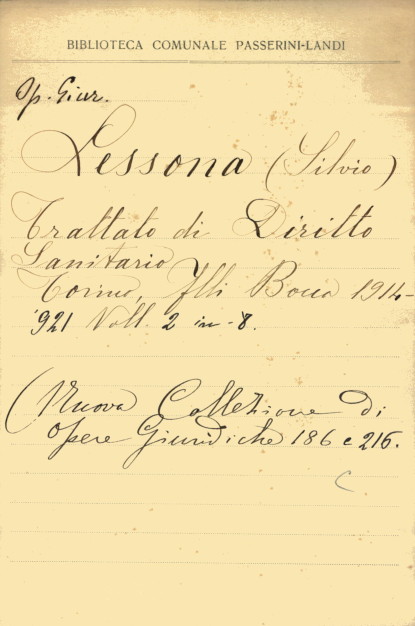 BIBLIOTECA COMUNALE PASSERINI-LANDI
Op. Giur.
Lessona (Silvio)
Trattato di Diritto
Sanitario
Torino, Flli Bocca 1914-
'921 Voll. 2 in-8.
(Nuova Collezione di
Opere Giuridiche 186 e 216.